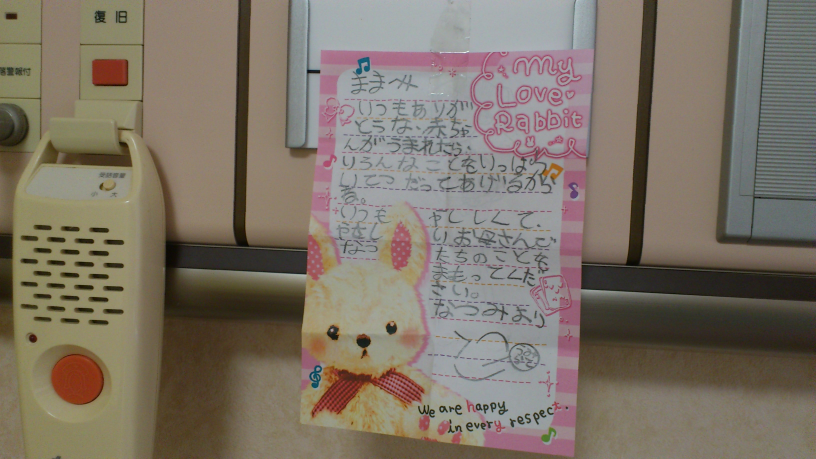 復旧
My
Love
Rabbit
ままへ
いつもありが
とうな、赤ちゃ
んがうまれたら、
いろんなことをいっぱい
してつだってあげるから
ね。
いつも
やさし
なつ
やししくて、
い、お母さんで
たちのことを
まもってくだ
さい。
なつみより
We are happy
in every respect.